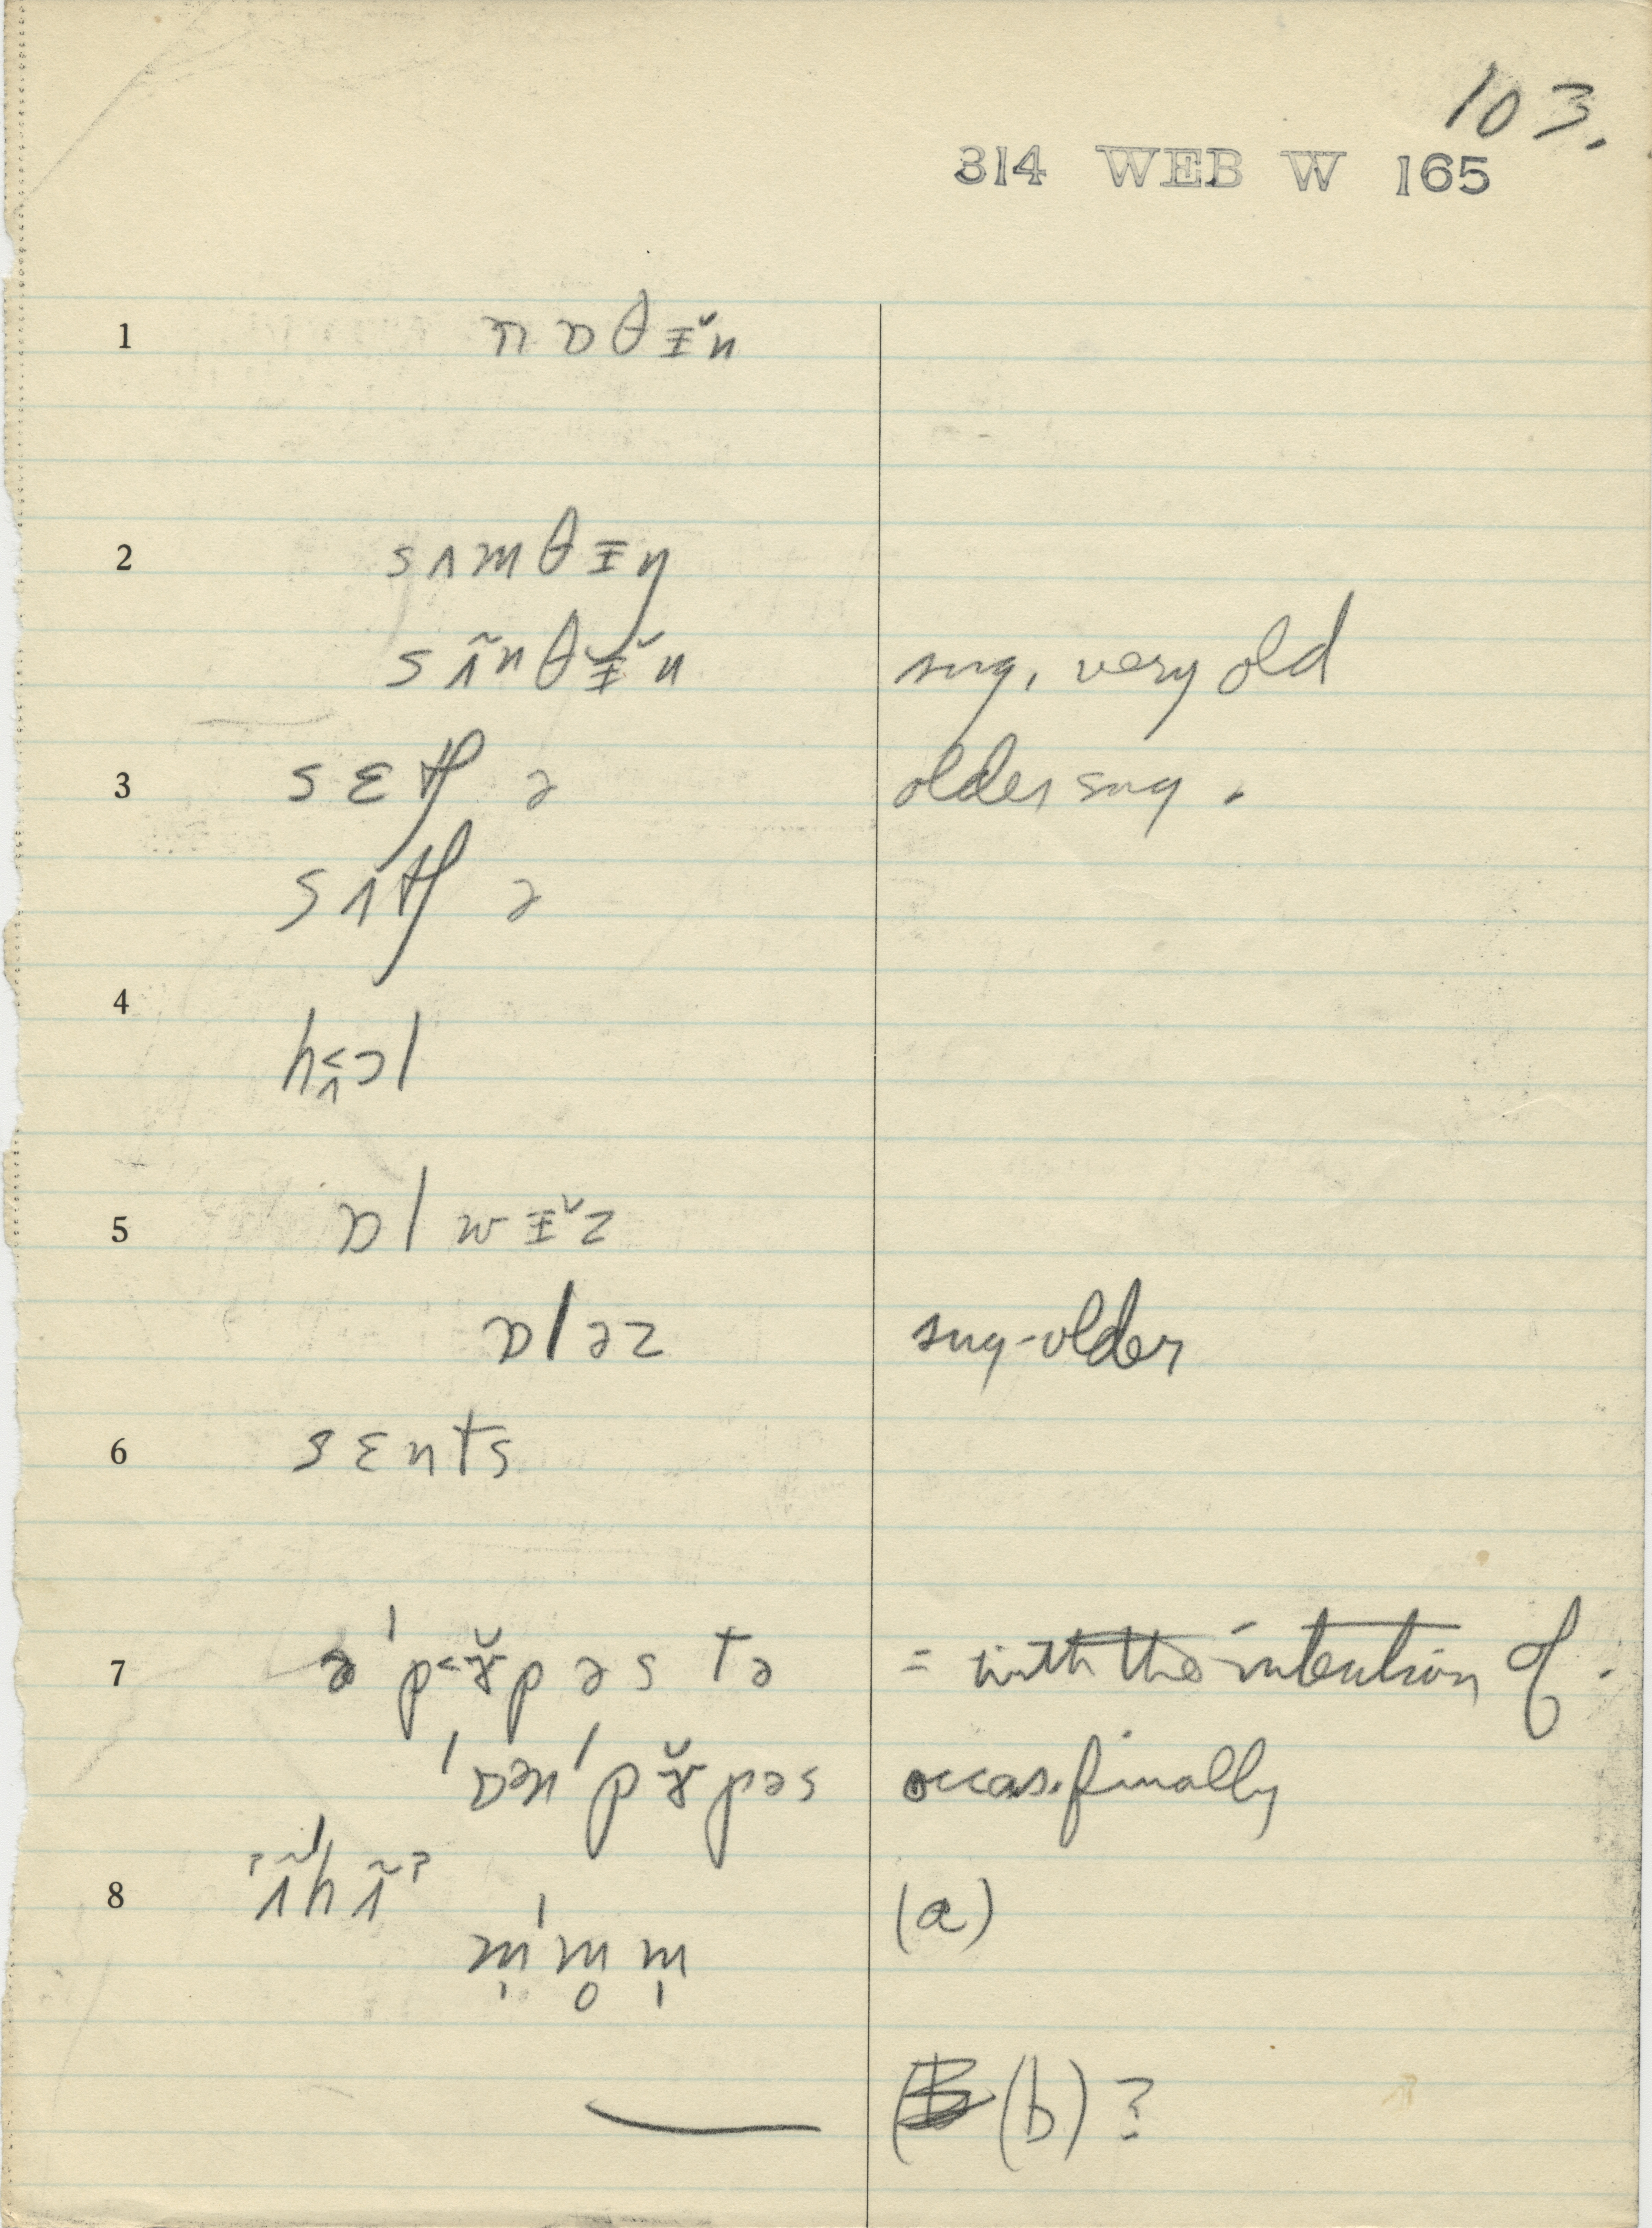 103.
314 WEB W 165
1 nɒθɪ̆n
2 sʌmθɪŋ
sʌ̃nθɪ̆n sug, very old
3 sɛtʃ ə older sug.
sʌtʃ ə
4 hʌ̬ɔl
5 ɒlwɪ̆z
ɒləz sug-older
6 sɛnts
7 əˈp˂ɚ̆pəs tə = with the intention of.
ˈɒənˈpɚ̆pəs occas. finally
8 ʔʌ̃ˈhʌ̃ʔ (a)
m̩ˈm̥m̩
— (b)?